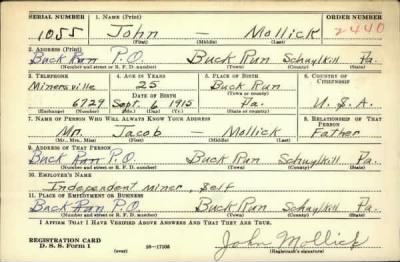 SERIAL NUMBER 1. NAME (Print) ORDER NUMBER
1055 John — Mollick 2440
(First) (Middle) (Last)
2. ADDRESS (Print)
Buck Run P.O. Buck Run Schuylkill Pa.
(Number and street or R. F. D. number) (Town) (County) (State)
3. TELEPHONE 4. AGE IN YEARS 5. PLACE OF BIRTH 6. COUNTRY OF CITIZENSHIP
Minersville 25 Buck Run
DATE OF BIRTH (Town or county)
6729 Sept. 6 1915 Pa. U.S.A.
(Exchange) (Number) (Mo.) (Day) (Yr.) (State or country)
7. NAME OF PERSON WHO WILL ALWAYS KNOW YOUR ADDRESS 8. RELATIONSHIP OF THAT PERSON
Mr. Jacob — Mollick Father
(Mr., Mrs., Miss) (First) (Middle) (Last)
9. ADDRESS OF THAT PERSON
Buck Run P.O. Buck Run Schuylkill Pa.
(Number and street or R. F. D. number) (Town) (County) (State)
10. EMPLOYER'S NAME
Independent Miner, Self
11. PLACE OF EMPLOYMENT OR BUSINESS
Buck Run P.O. Buck Run Schuylkill Pa.
(Number and street or R. F. D. number) (Town) (County) (State)
I AFFIRM THAT I HAVE VERIFIED ABOVE ANSWERS AND THAT THEY ARE TRUE.
REGISTRATION CARD
D. S. S. Form 1 (over) 16—17105 John Mollick
(Registrant's signature)